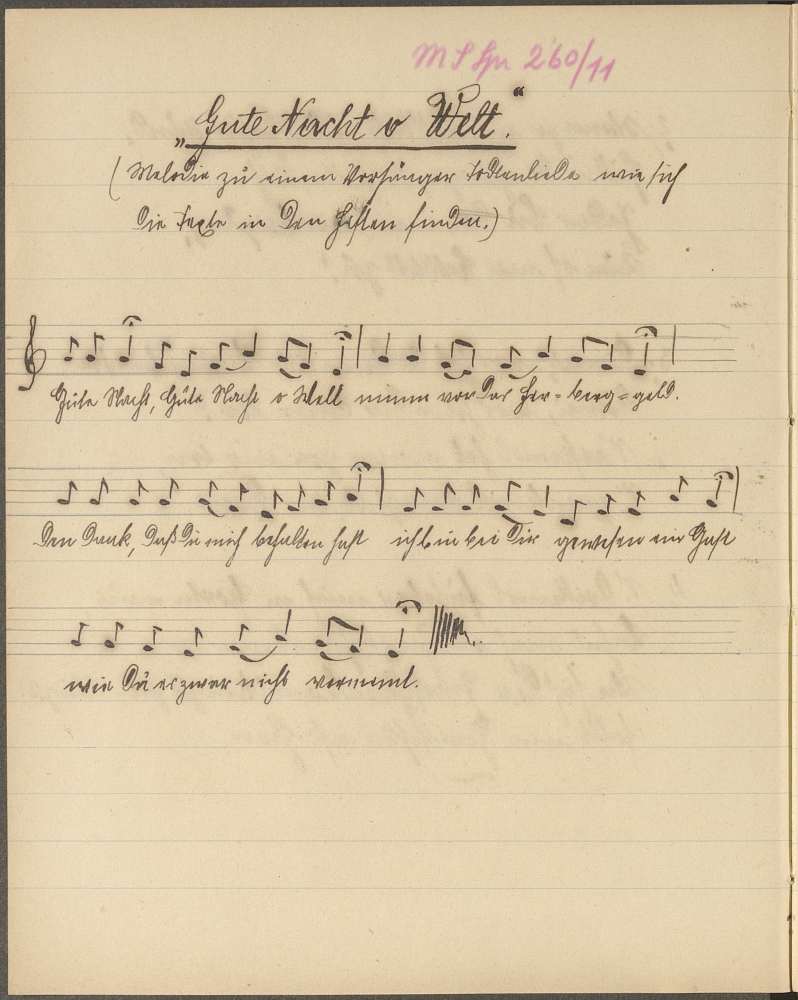 260/11
„Gute Nacht o Welt.“
(Melodie zu einem Vorsänger Todtenliede wie sich
die Texte in den Heften finden.)
Gute Nacht, Gute Nacht o Welt nimm vor das Her=berg=geld.
Den Dank, daß du mich behalten hast ich bin bei dir gewesen ein Gast
wie du es zwar nicht vermeint.